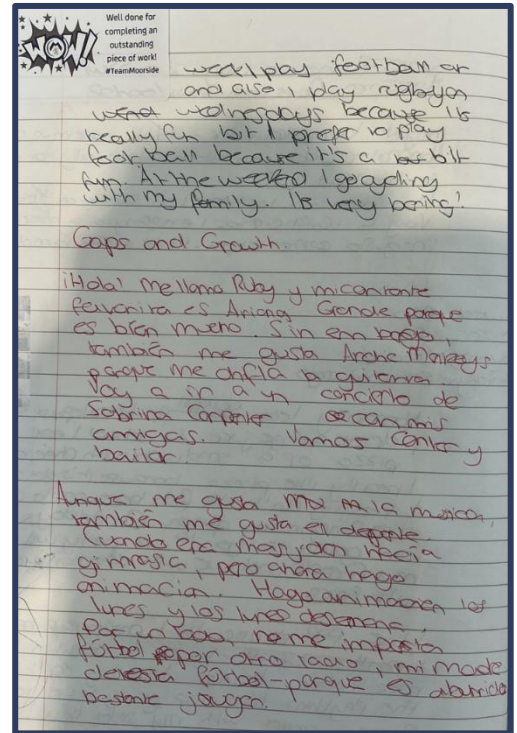 WOW!
Well done for
completing an
outstanding
piece of work!
#TeamMoorside
week I play football or
and also I play rugby on
wednesdays because It's
really fun but I prefer to play
foot ball because it's a bit
fun. At the weekend I go cycling
with my family. It's very boring!
Gaps and Growth.
¡Hola! me llamo Ruby y mi cantante
favorita es Ariana Grande porque
es bien mucho. Sin em bargo,
también me gusta
porque me chifla la guitarra.
Voy a ir a un concierto de
Sabrina Carpenter con mis
amigas. Vamos y
bailar.
Aunque me gusta la musica,
también me gusta el deporte.
Cuando era mas joven hacía
gimnasia, pero ahora hago
animacion. Hago animacion los
lunes y los lunes
Por un lado, no me importa
fútbol por otro lado, mi madre
detesta fútbol porque es aburrido
bastante